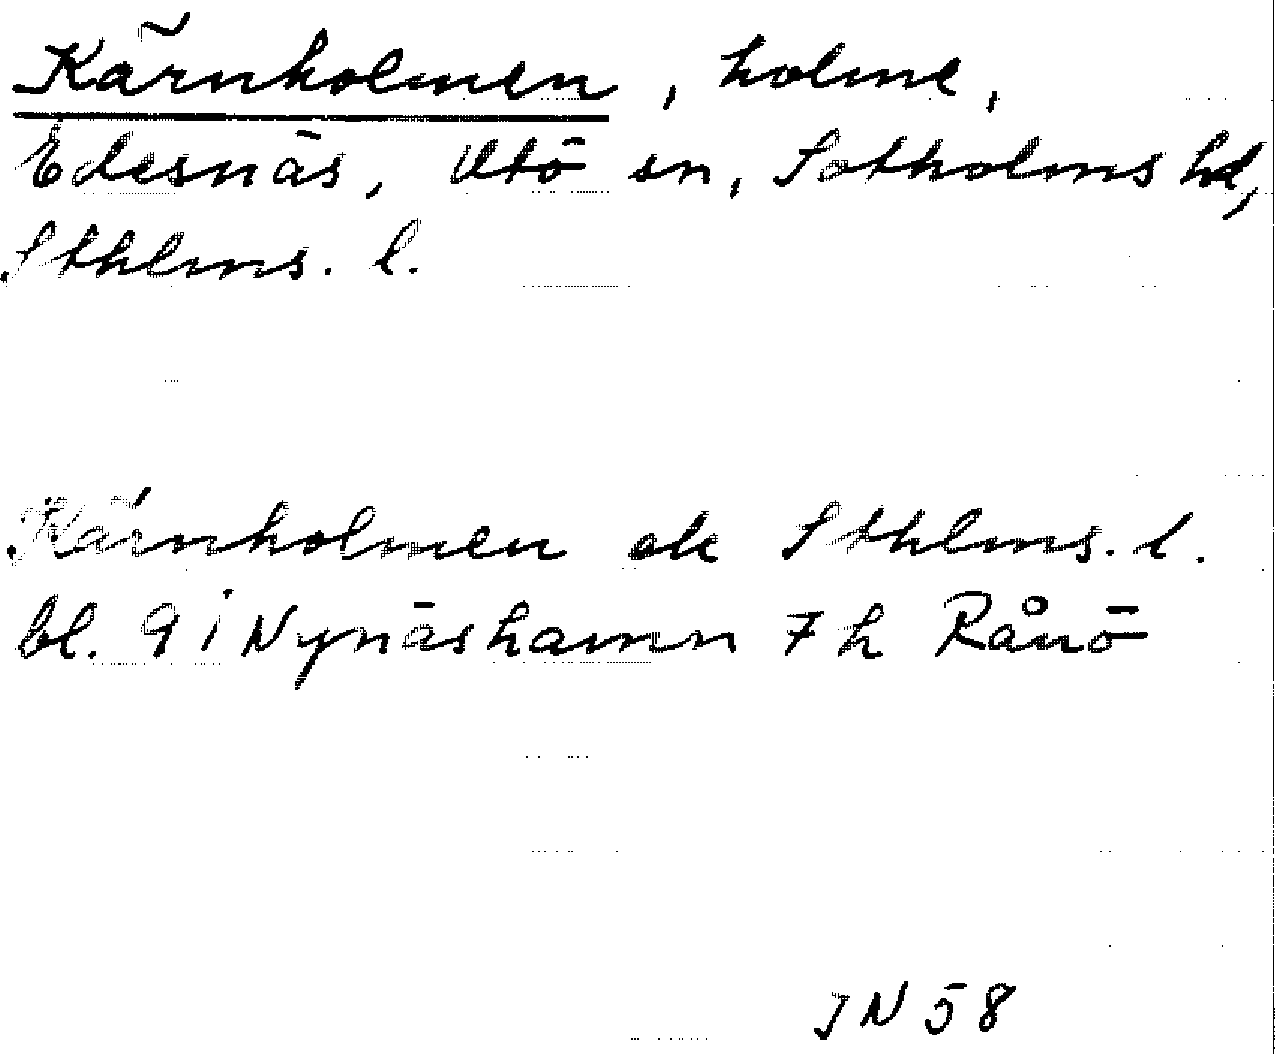 Kärnholmen, holme,
Edesnäs, Utö sn, Sotholms hd,
Sthlms. l.
Kärnholmen ek Sthlms. l.
bl. 9 i Nynäshamn 7 h Rånö
JN 58